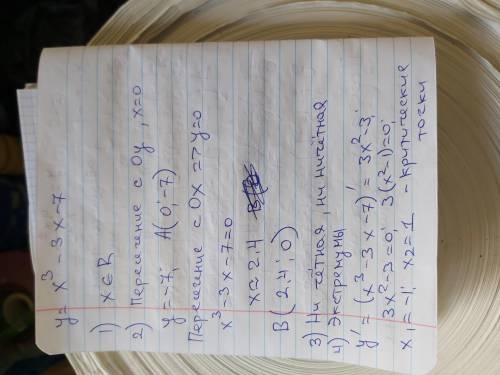 y = x³ - 3x - 7
1) x ∈ R
2) Пересечение с Oy, x=0
y = -7; A(0; -7)
Пересечение с Ox => y=0
x³ - 3x - 7 = 0
x ≈ 2.4
B(2,4; 0)
3) Ни чётная, ни ничётная
4) Экстремумы
y' = (x³ - 3x - 7)' = 3x² - 3;
3x² - 3 = 0; 3(x² - 1) = 0;
x₁ = -1; x₂ = 1 - критические
точки